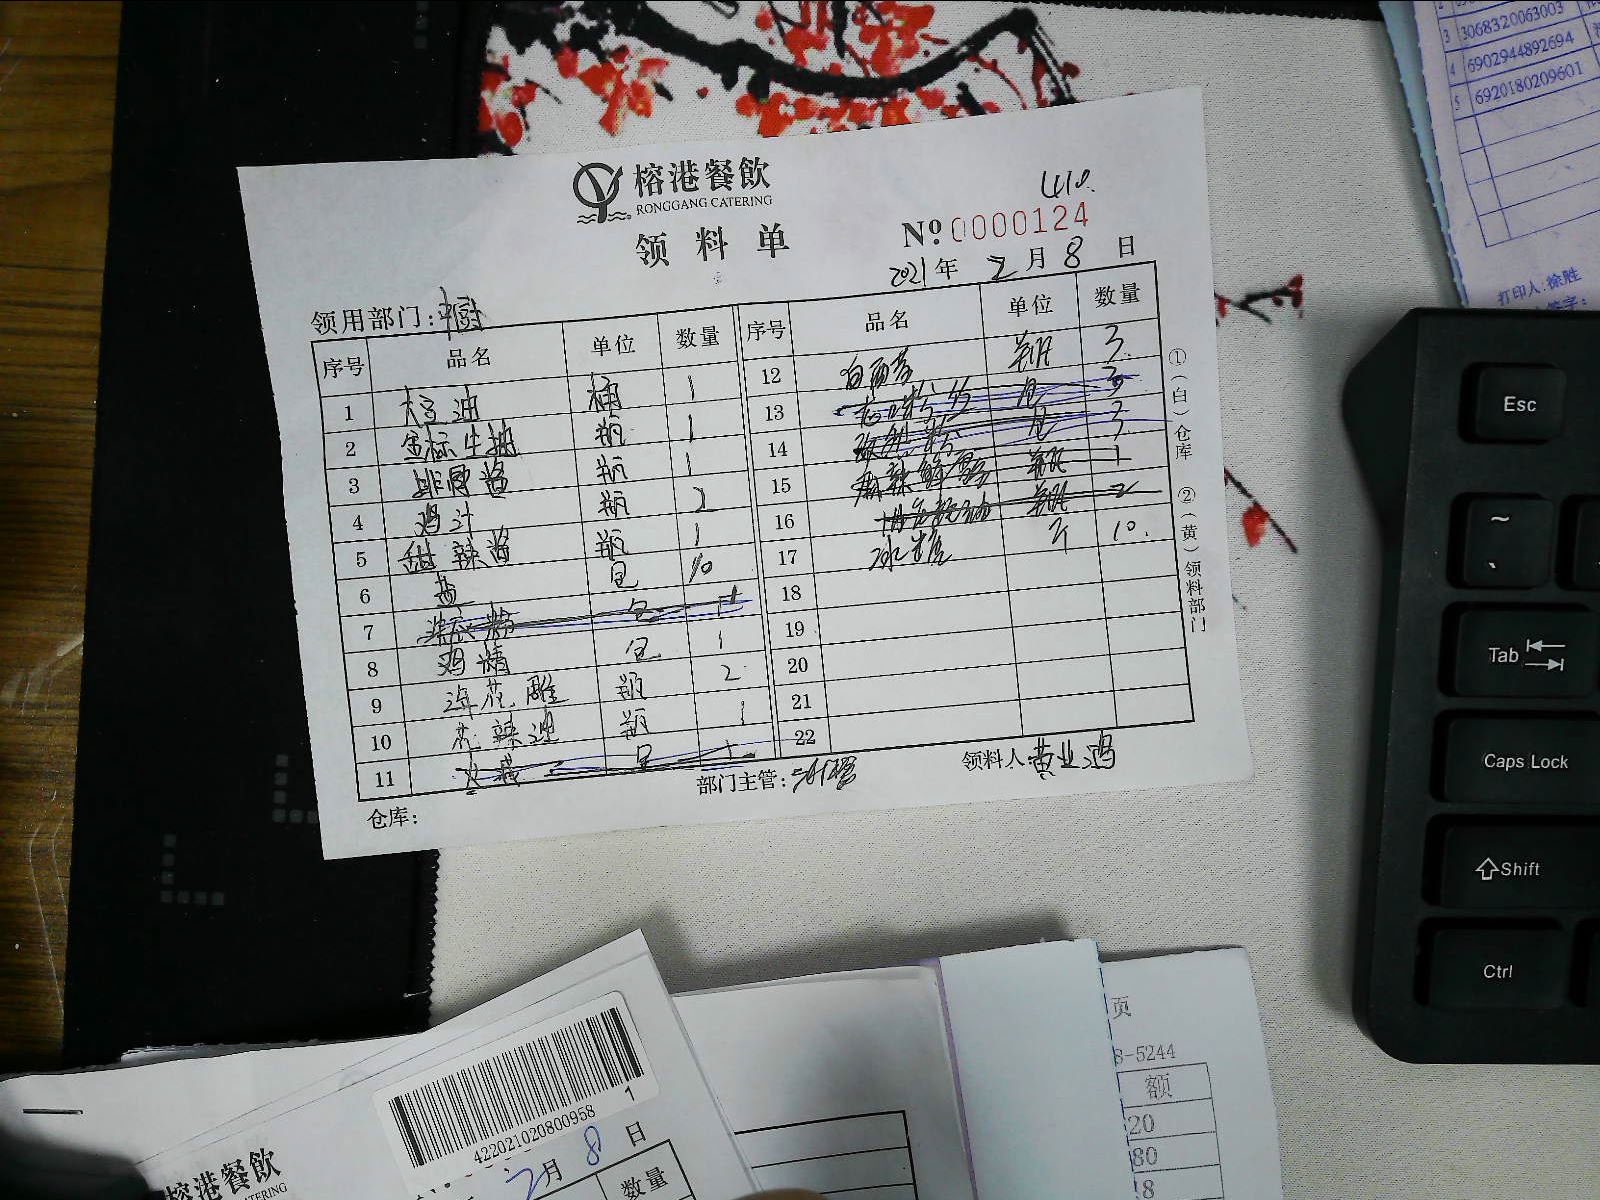 3 3068320063003
4 6902944892694
5 6920180209601
打印人:徐胜
签字:
榕港餐飲
RONGGANG CATERING
领料单
No 0000124
2021年 2月 8日
领用部门:中厨
序号 品名 单位 数量 序号 品名 单位 数量
1 大豆油 桶 1 12 白兰地 瓶 3
2 金标生抽 瓶 1 13 包 3
3 排骨酱 瓶 1 14 包 3
4 鸡汁 瓶 2 15 麻辣鲜露 瓶 1
5 甜辣酱 瓶 1 16 瓶 2
6 盐 包 10 17 冰糖 斤 10
7 包 1 18
8 鸡精 包 1 19
9 花雕 瓶 2 20
10 花辣油 瓶 1 21
11 包 1 22
仓库: 部门主管: 领料人:黄业鸿
①(白)仓库 ②(黄)领料部门
Esc
~
Tab
Caps Lock
Shift
Ctrl
422021020800958
1
2月 8日
榕港餐飲
数量
页
8-5244
额
20
80
18